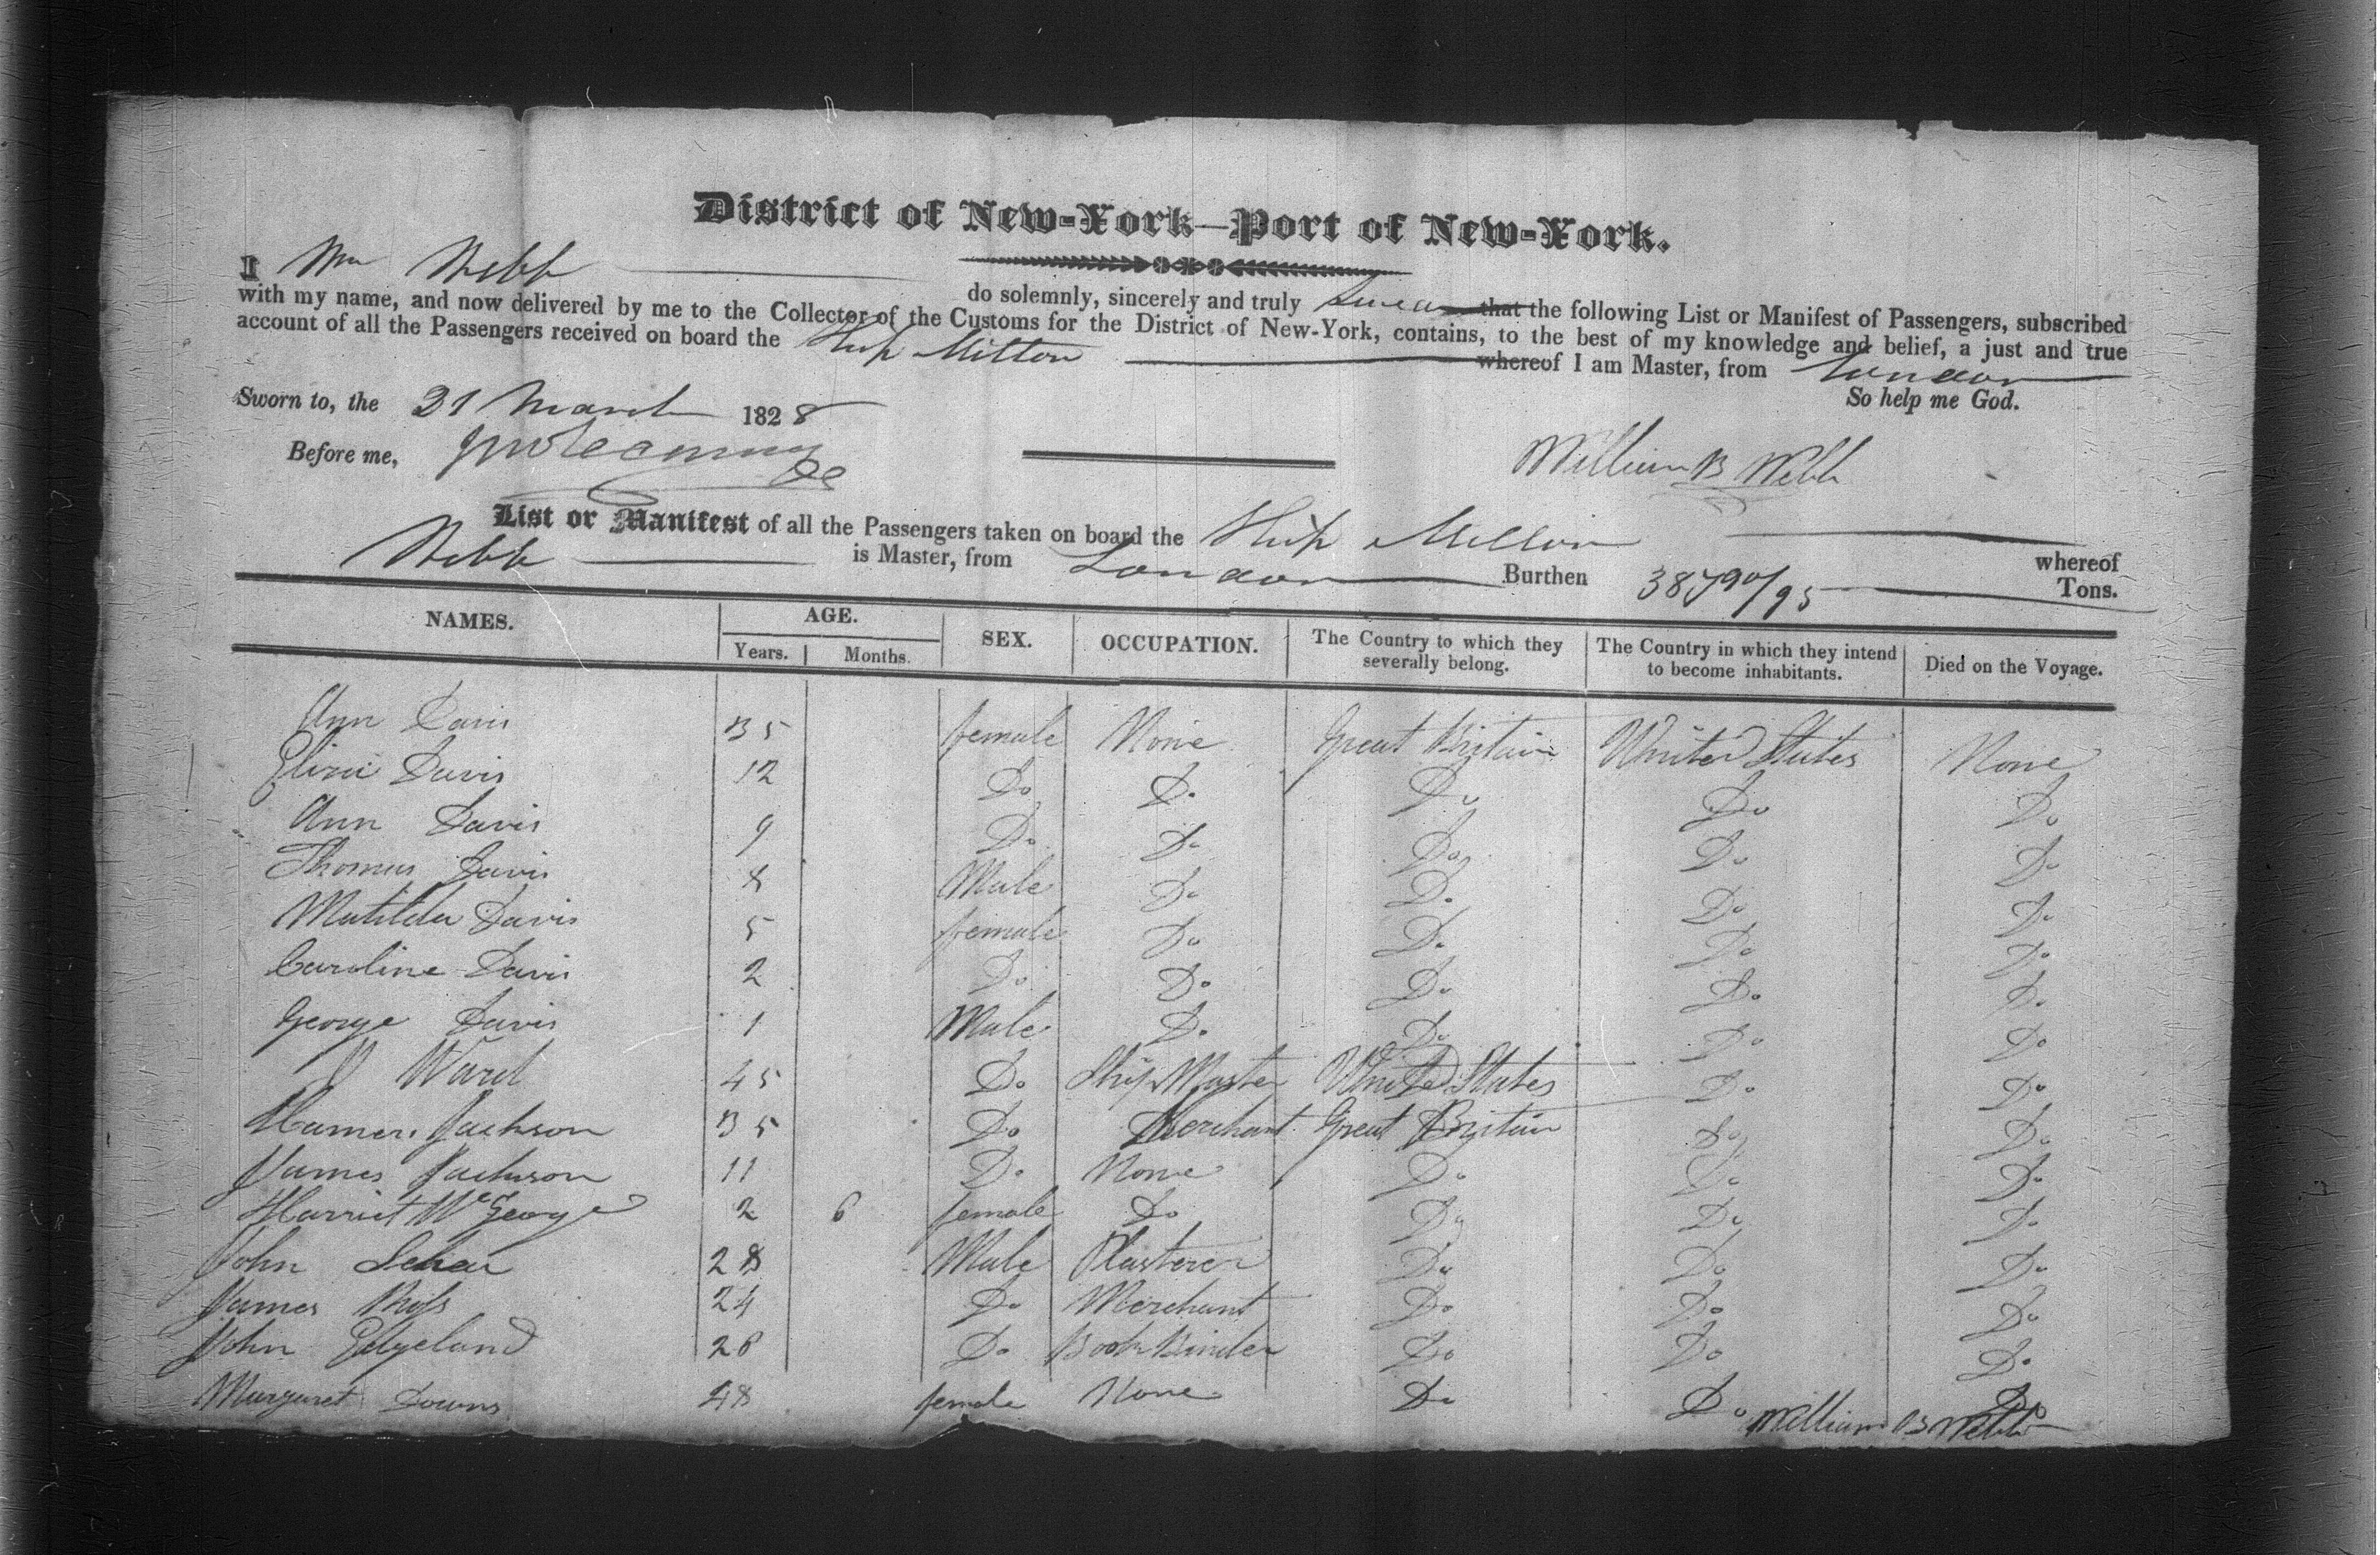 District of New-York—Port of New-York.
I Wm Webb do solemnly, sincerely and truly Swear that the following List or Manifest of Passengers, subscribed
with my name, and now delivered by me to the Collector of the Customs for the District of New-York, contains, to the best of my knowledge and belief, a just and true
account of all the Passengers received on board the Ship Milton whereof I am Master, from London
So help me God.
Sworn to, the 31 March 1828
Before me,
William B Webb
List or Manifest of all the Passengers taken on board the Ship Milton whereof
Webb is Master, from London Burthen 387 90/95 Tons.
NAMES. AGE. Years. Months. SEX. OCCUPATION. The Country to which they severally belong. The Country in which they intend to become inhabitants. Died on the Voyage.
Ann Davis 35 female None Great Britain United States None
Eliza Davis 12 Do Do Do Do Do
Ann Davis 9 Do Do Do Do Do
Thomas Davis 8 Male Do Do Do Do
Matilda Davis 5 female Do Do Do Do
Caroline Davis 2 Do Do Do Do Do
George Davis 1 Male Do Do Do Do
J Ward 45 Do Ship Master United States Do Do
Jackson 35 Do Merchant Great Britain Do Do
James Jackson 11 Do None Do Do Do
Harriet McGeorge 2 6 female Do Do Do Do
John 28 Male Plasterer Do Do Do
James Ross 24 Do Merchant Do Do Do
John Edgeland 26 Do Book Binder Do Do Do
Margaret Downs 48 female None Do Do Do
William B Webb